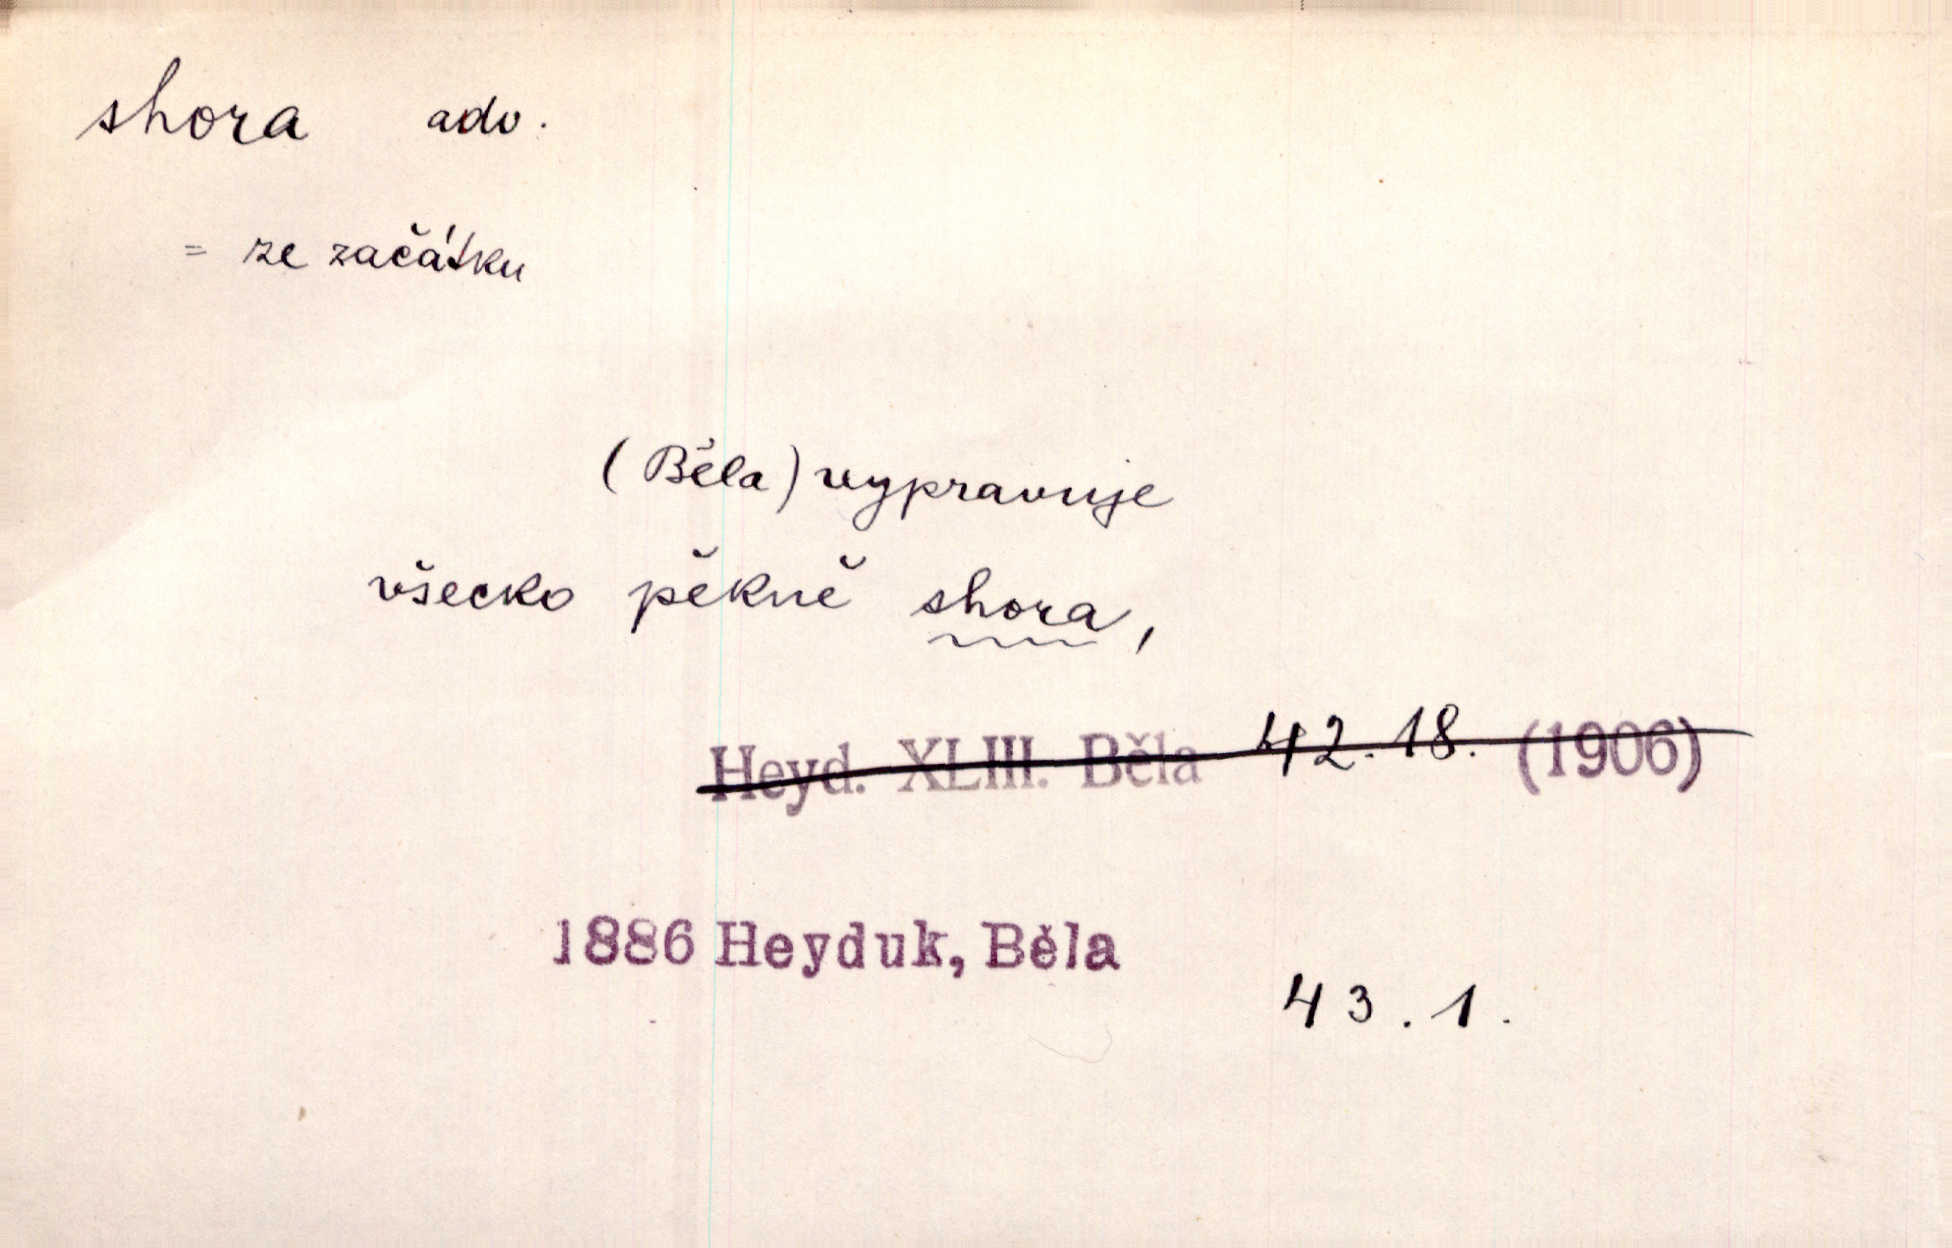 shora adv.
= ze začátku
(Běla) vypravuje
všecko pěkně shora,
Heyd. XLIII. Běla 42.18. (1906)
1886 Heyduk, Běla
43.1.